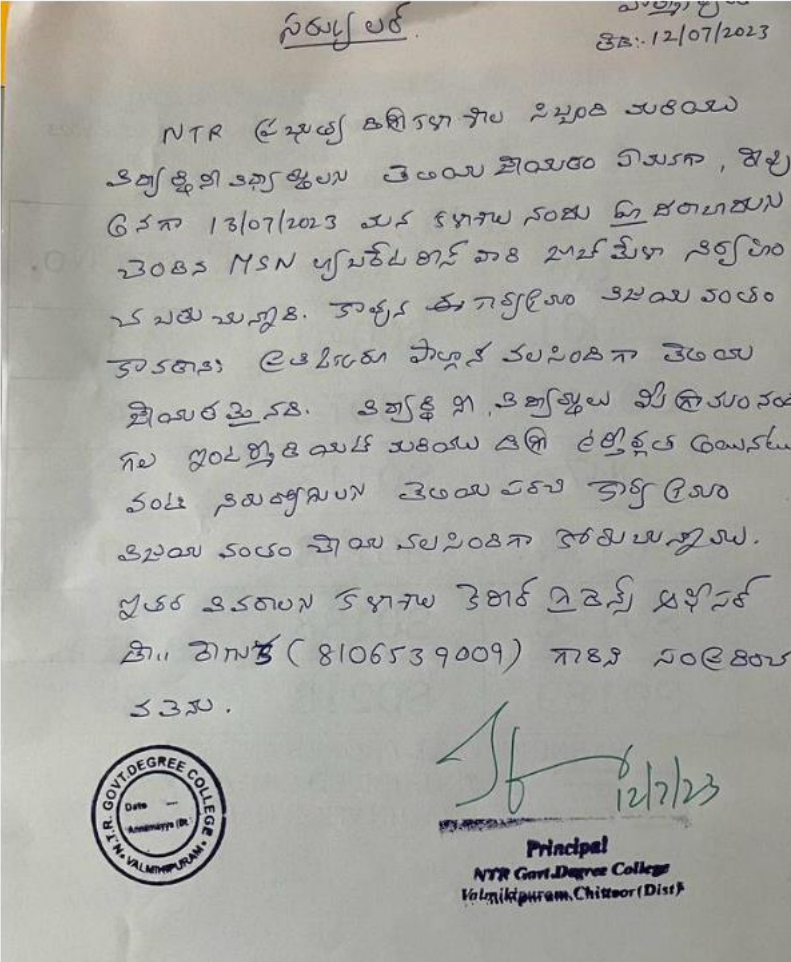 సర్క్యులర్.
తేది:- 12/07/2023
NTR ప్రభుత్వ డిగ్రీ కళాశాల సిబ్బంది మరియు
విద్యార్థినీ విద్యార్థులకు తెలియ జేయడం ఏమనగా, రేపు
అనగా 13/07/2023 మన కళాశాల నందు హైదరాబాదుకు
చెందిన MSN ల్యాబరేటరీస్ వారి జాబ్ మేళా నిర్వహిం
చ బడుచున్నది. కావున ఈ కార్యక్రమం విజయ వంతం
కావడానికి ప్రతిఒక్కరూ పాల్గొన వలసిందిగా తెలియ
జేయడమైనది. విద్యార్థినీ, విద్యార్థులు మీ గ్రామం నందు
గల ఇంటర్మీడియట్ మరియు డిగ్రీ ఉత్తీర్ణత అయినటు
వంటి నిరుద్యోగులకు తెలియ పరచి కార్యక్రమం
విజయ వంతం చేయ వలసిందిగా కోరుచున్నాము.
ఇతర వివరాలకు కళాశాల కెరీర్ గైడెన్స్ ఆఫీసర్
(8106539009) గారిని సంప్రదించ
వచ్చును.
12/7/23
N.T.R. GOVT. DEGREE COLLEGE
Date
Annamayya (Dt.)
VALMIKIPURAM
Principal
NTR Govt.Degree College
Valmikipuram, Chittoor (Dist)